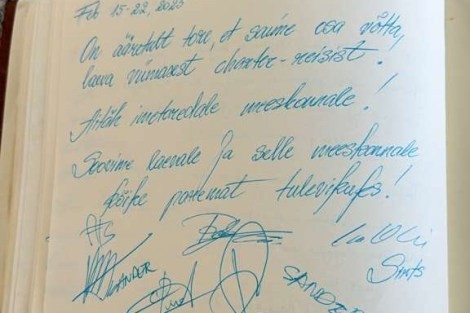 Feb 15-22, 2020
On ääretult tore, et saime osa võtta,
laeva viimasest charter-reisist.
Aitäh imetoredale meeskonnale!
Soovime laevale ja selle meeskonnale
kõike paremat tulevikuks!
SANDER